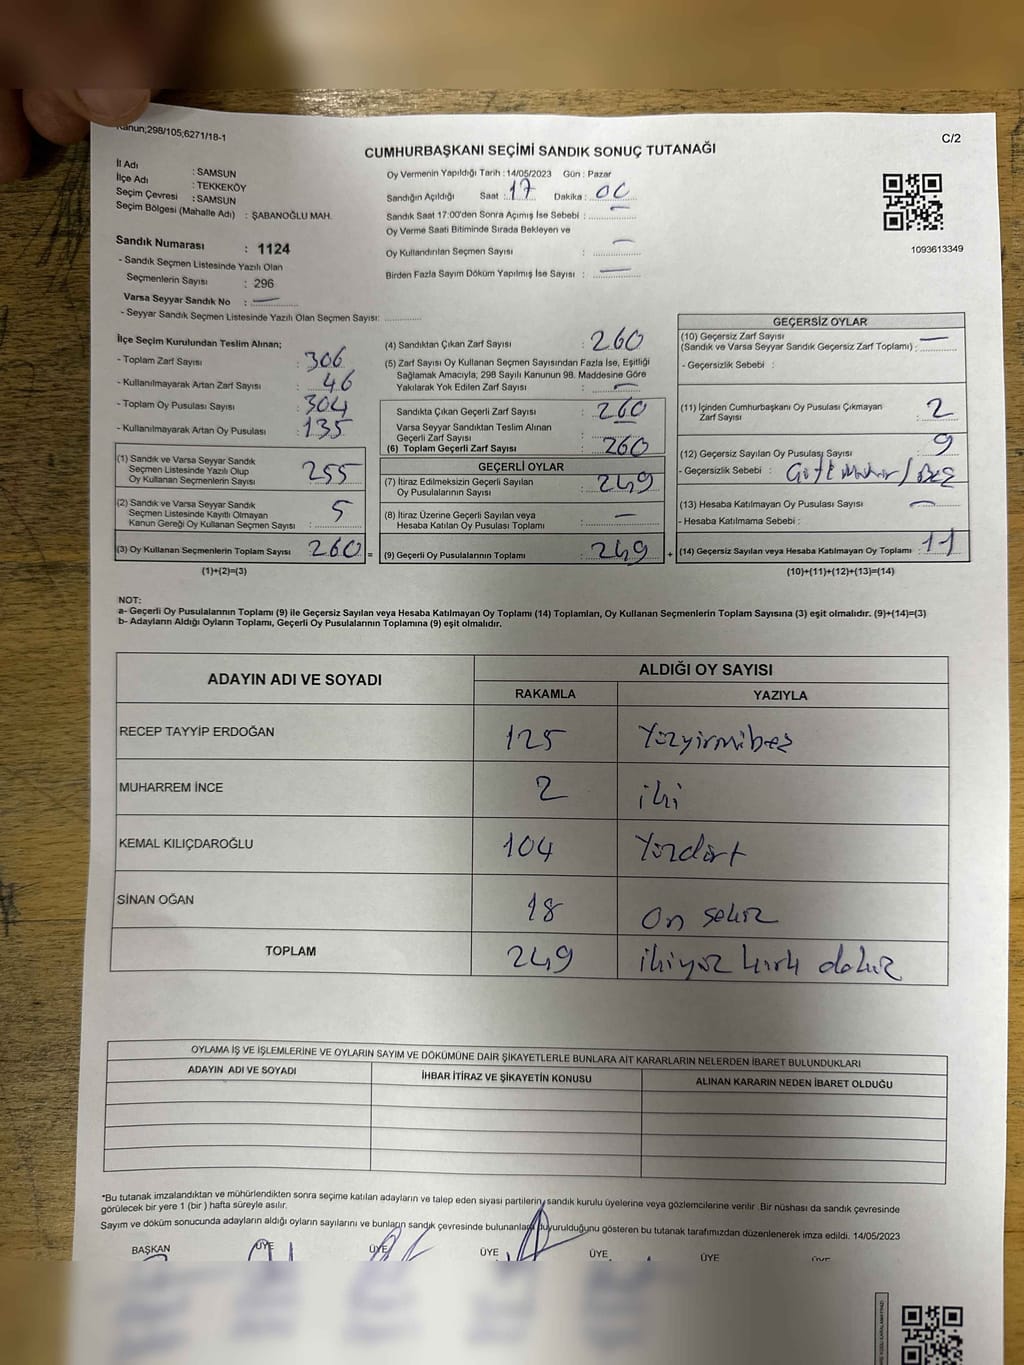 Kanun;298/105;6271/18-1
C/2
CUMHURBAŞKANI SEÇİMİ SANDIK SONUÇ TUTANAĞI
İl Adı : SAMSUN
İlçe Adı : TEKKEKÖY
Seçim Çevresi : SAMSUN
Seçim Bölgesi (Mahalle Adı) : ŞABANOĞLU MAH.
Sandık Numarası : 1124
- Sandık Seçmen Listesinde Yazılı Olan
Seçmenlerin Sayısı : 296
Varsa Seyyar Sandık No : —
- Seyyar Sandık Seçmen Listesinde Yazılı Olan Seçmen Sayısı: ..............
Oy Vermenin Yapıldığı Tarih : 14/05/2023 Gün : Pazar
Sandığın Açıldığı Saat : 17 Dakika : 00
Sandık Saat 17:00'den Sonra Açımış İse Sebebi : —
Oy Verme Saati Bitiminde Sırada Bekleyen ve
Oy Kullandırılan Seçmen Sayısı : —
Birden Fazla Sayım Döküm Yapılmış İse Sayısı : —
1093613349
İlçe Seçim Kurulundan Teslim Alınan;
- Toplam Zarf Sayısı : 306
- Kullanılmayarak Artan Zarf Sayısı : 46
- Toplam Oy Pusulası Sayısı : 304
- Kullanılmayarak Artan Oy Pusulası : 135
(1) Sandık ve Varsa Seyyar Sandık
Seçmen Listesinde Yazılı Olup
Oy Kullanan Seçmenlerin Sayısı : 255
(2) Sandık ve Varsa Seyyar Sandık
Seçmen Listesinde Kayıtlı Olmayan
Kanun Gereği Oy Kullanan Seçmen Sayısı : 5
(3) Oy Kullanan Seçmenlerin Toplam Sayısı : 260 =
(1)+(2)=(3)
(4) Sandıktan Çıkan Zarf Sayısı : 260
(5) Zarf Sayısı Oy Kullanan Seçmen Sayısından Fazla İse, Eşitliği
Sağlamak Amacıyla; 298 Sayılı Kanunun 98. Maddesine Göre
Yakılarak Yok Edilen Zarf Sayısı : —
Sandıkta Çıkan Geçerli Zarf Sayısı : 260
Varsa Seyyar Sandıktan Teslim Alınan
Geçerli Zarf Sayısı : —
(6) Toplam Geçerli Zarf Sayısı : 260
GEÇERLİ OYLAR
(7) İtiraz Edilmeksizin Geçerli Sayılan
Oy Pusulalarının Sayısı : 249
(8) İtiraz Üzerine Geçerli Sayılan veya
Hesaba Katılan Oy Pusulası Toplamı : —
(9) Geçerli Oy Pusulalarının Toplamı : 249 +
GEÇERSİZ OYLAR
(10) Geçersiz Zarf Sayısı
(Sandık ve Varsa Seyyar Sandık Geçersiz Zarf Toplamı) : —
- Geçersizlik Sebebi :
(11) İçinden Cumhurbaşkanı Oy Pusulası Çıkmayan
Zarf Sayısı : 2
(12) Geçersiz Sayılan Oy Pusulası Sayısı : 9
- Geçersizlik Sebebi :
(13) Hesaba Katılmayan Oy Pusulası Sayısı : —
- Hesaba Katılmama Sebebi :
(14) Geçersiz Sayılan veya Hesaba Katılmayan Oy Toplamı : 11
(10)+(11)+(12)+(13)=(14)
NOT:
a- Geçerli Oy Pusulalarının Toplamı (9) ile Geçersiz Sayılan veya Hesaba Katılmayan Oy Toplamı (14) Toplamları, Oy Kullanan Seçmenlerin Toplam Sayısına (3) eşit olmalıdır. (9)+(14)=(3)
b- Adayların Aldığı Oyların Toplamı, Geçerli Oy Pusulalarının Toplamına (9) eşit olmalıdır.
ADAYIN ADI VE SOYADI
ALDIĞI OY SAYISI
RAKAMLA YAZIYLA
RECEP TAYYİP ERDOĞAN 125 Yüzyirmibeş
MUHARREM İNCE 2 iki
KEMAL KILIÇDAROĞLU 104 Yüzdört
SİNAN OĞAN 18 On sekiz
TOPLAM 249 ikiyüz kırk dokuz
OYLAMA İŞ VE İŞLEMLERİNE VE OYLARIN SAYIM VE DÖKÜMÜNE DAİR ŞİKAYETLERLE BUNLARA AİT KARARLARIN NELERDEN İBARET BULUNDUKLARI
ADAYIN ADI VE SOYADI İHBAR İTİRAZ VE ŞİKAYETİN KONUSU ALINAN KARARIN NEDEN İBARET OLDUĞU
*Bu tutanak imzalandıktan ve mühürlendikten sonra seçime katılan adayların ve talep eden siyasi partilerin, sandık kurulu üyelerine veya gözlemcilerine verilir .Bir nüshası da sandık çevresinde
görülecek bir yere 1 (bir ) hafta süreyle asılır.
Sayım ve döküm sonucunda adayların aldığı oyların sayılarını ve bunların sandık çevresinde bulunanlara duyurulduğunu gösteren bu tutanak tarafımızdan düzenlenerek imza edildi. 14/05/2023
BAŞKAN ÜYE ÜYE ÜYE ÜYE ÜYE ÜYE